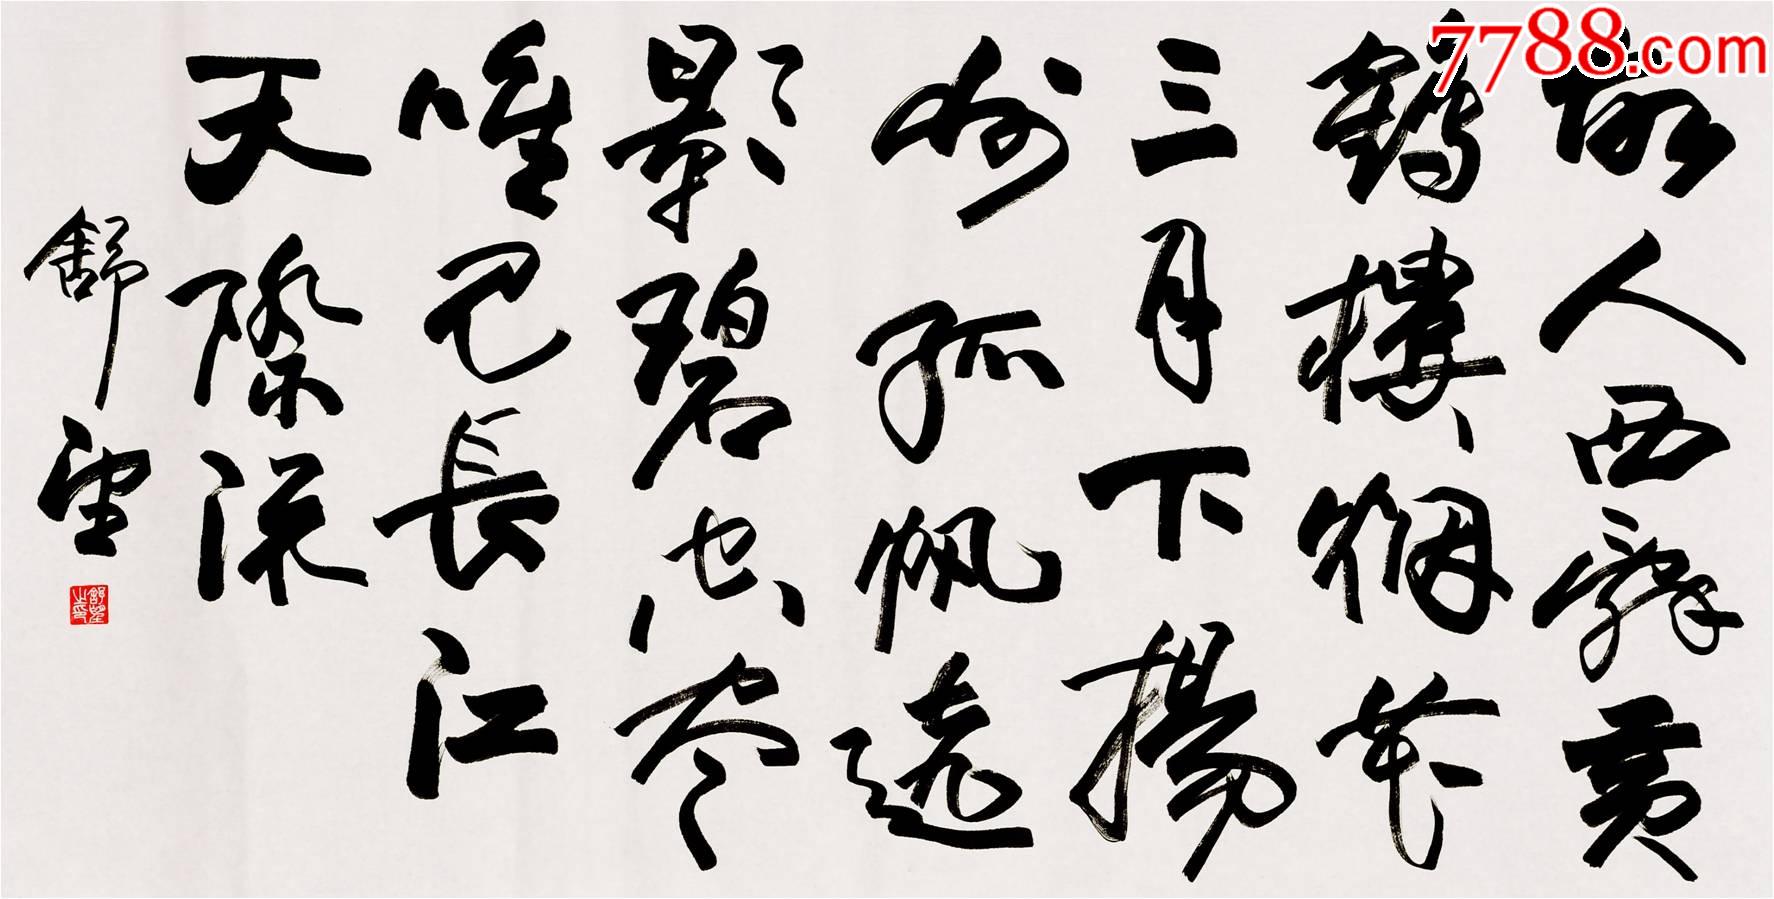 7788.com
故人西辭黄
鶴樓烟花
三月下揚
州孤帆遠
影碧空尽
唯見長江
天際流
舒望
舒望之印